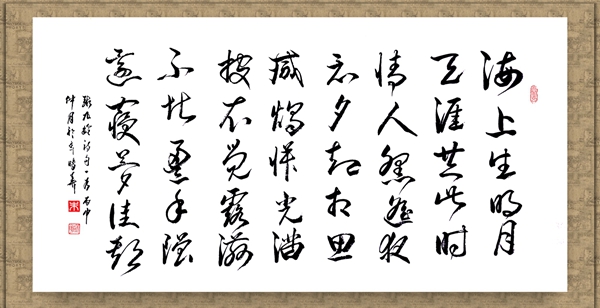 海上生明月
天涯共此时
情人怨遥夜
竟夕起相思
滅燭憐光满
披衣觉露滋
不堪盈手赠
還寝梦佳期
张九龄诗句一首丙申